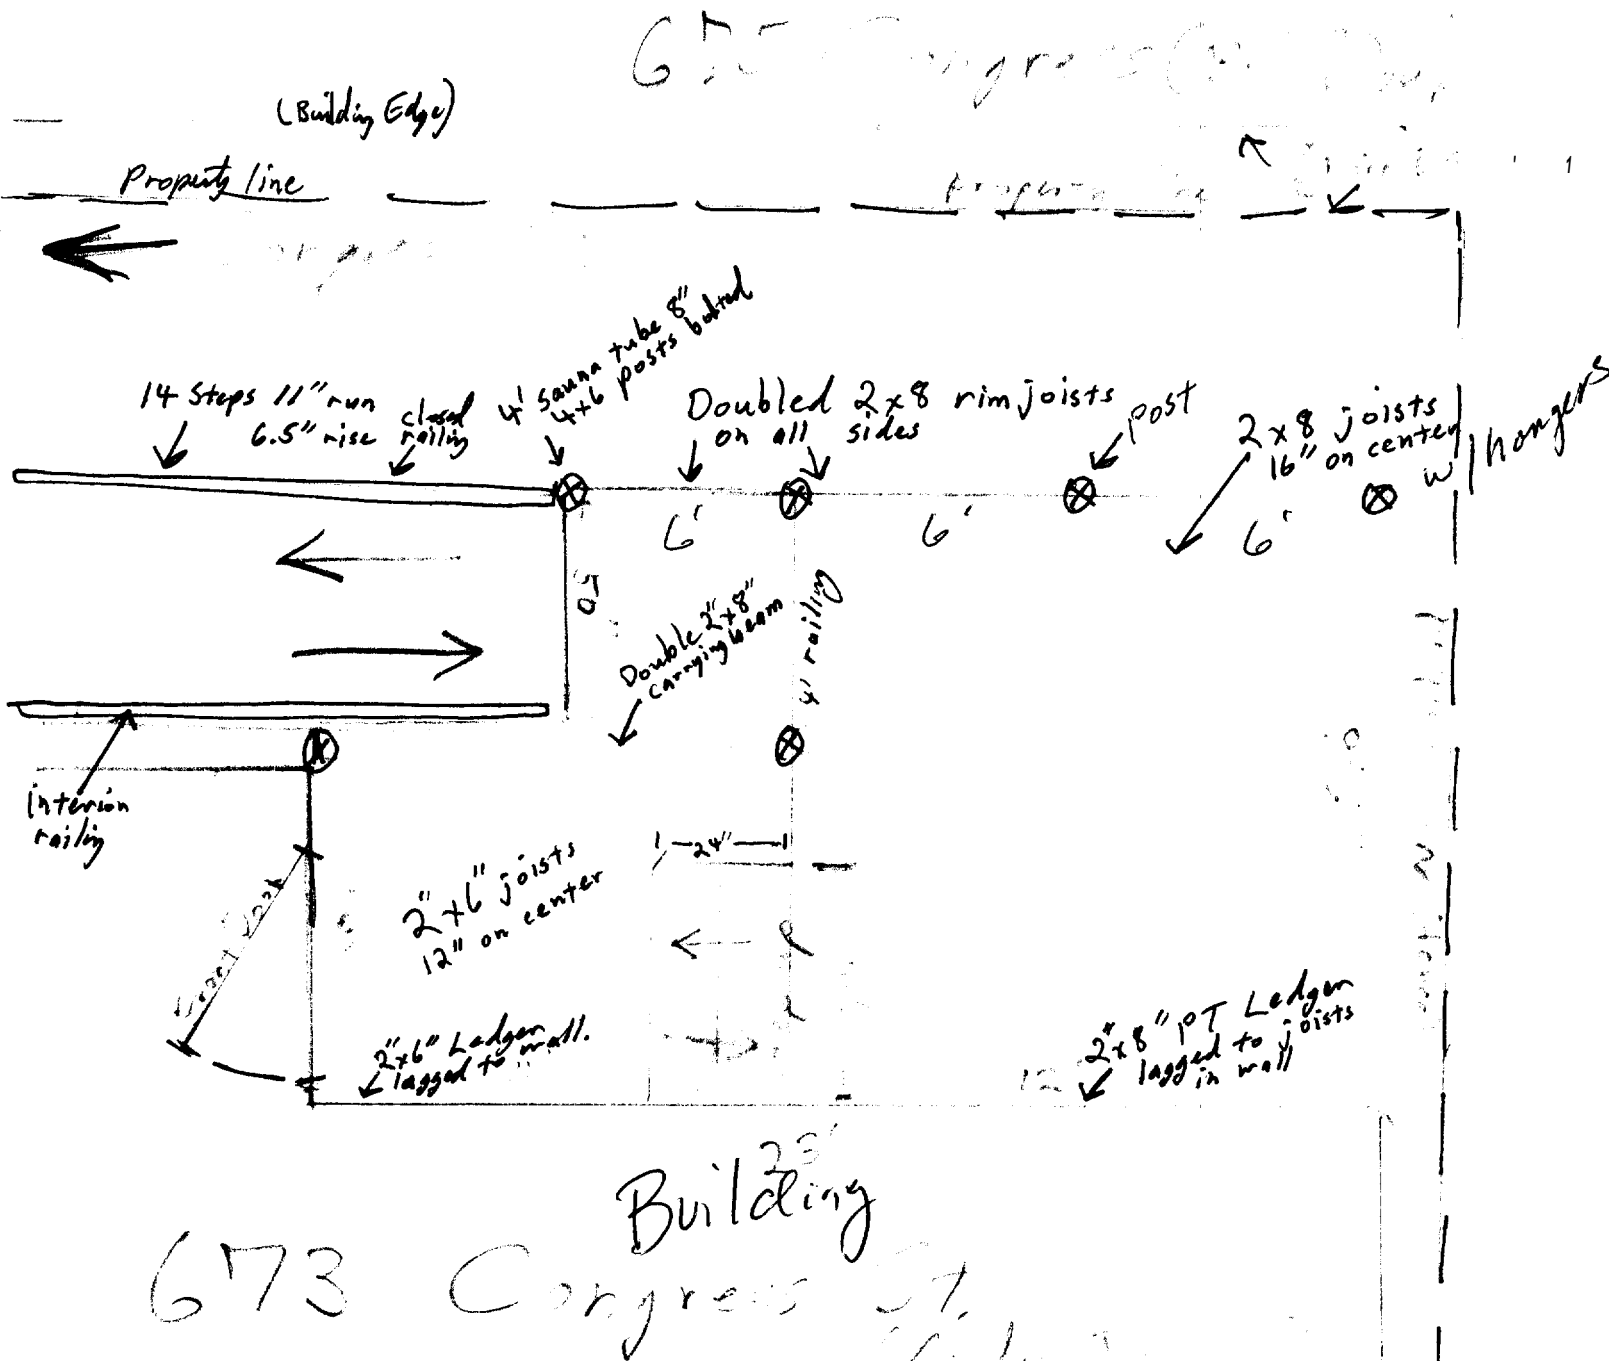 (Building Edge)
Property line
14 Steps 11" run
6.5" rise
closed
railing
4' sauna tube 8"
4x6 posts bolted
Doubled 2x8 rim joists
on all sides
post
2x8 joists
16" on center
w/hangers
6'
6'
6'
Double 2"x8"
carrying beam
4' railing
interior
railing
24"
2"x6" joists
12" on center
2"x6" Ledger
lagged to wall.
2"x8" PT Ledger
lagged to joists
in wall
12
23'
Building
673 Congress St.